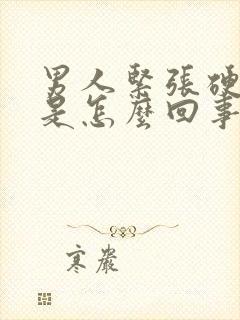 男人緊張硬
是怎麼回事
寒嚴